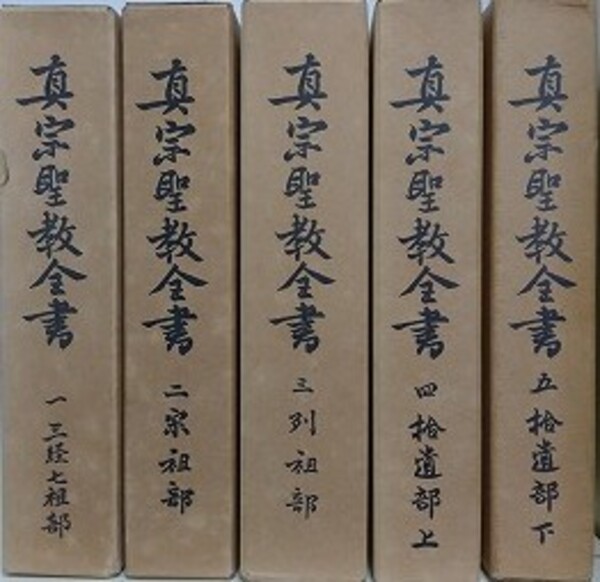 真宗聖教全書 一 三経七祖部
真宗聖教全書 二 宗祖部
真宗聖教全書 三 列祖部
真宗聖教全書 四 拾遺部上
真宗聖教全書 五 拾遺部下